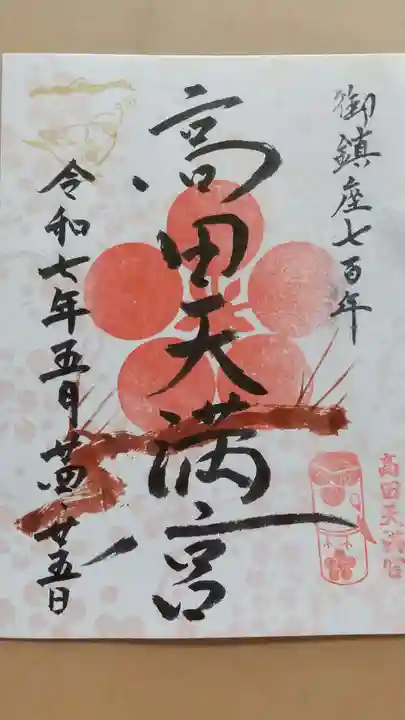 御鎮座七百年
高田天満宮
令和七年五月廿四、廿五日
高田天満宮